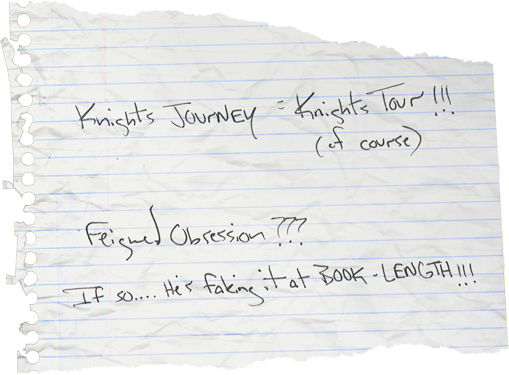 Knights JOURNEY = Knights Tour !!!
(of course)
Feigned Obsession ???
If so.... He's faking it at BOOK-LENGTH!!!